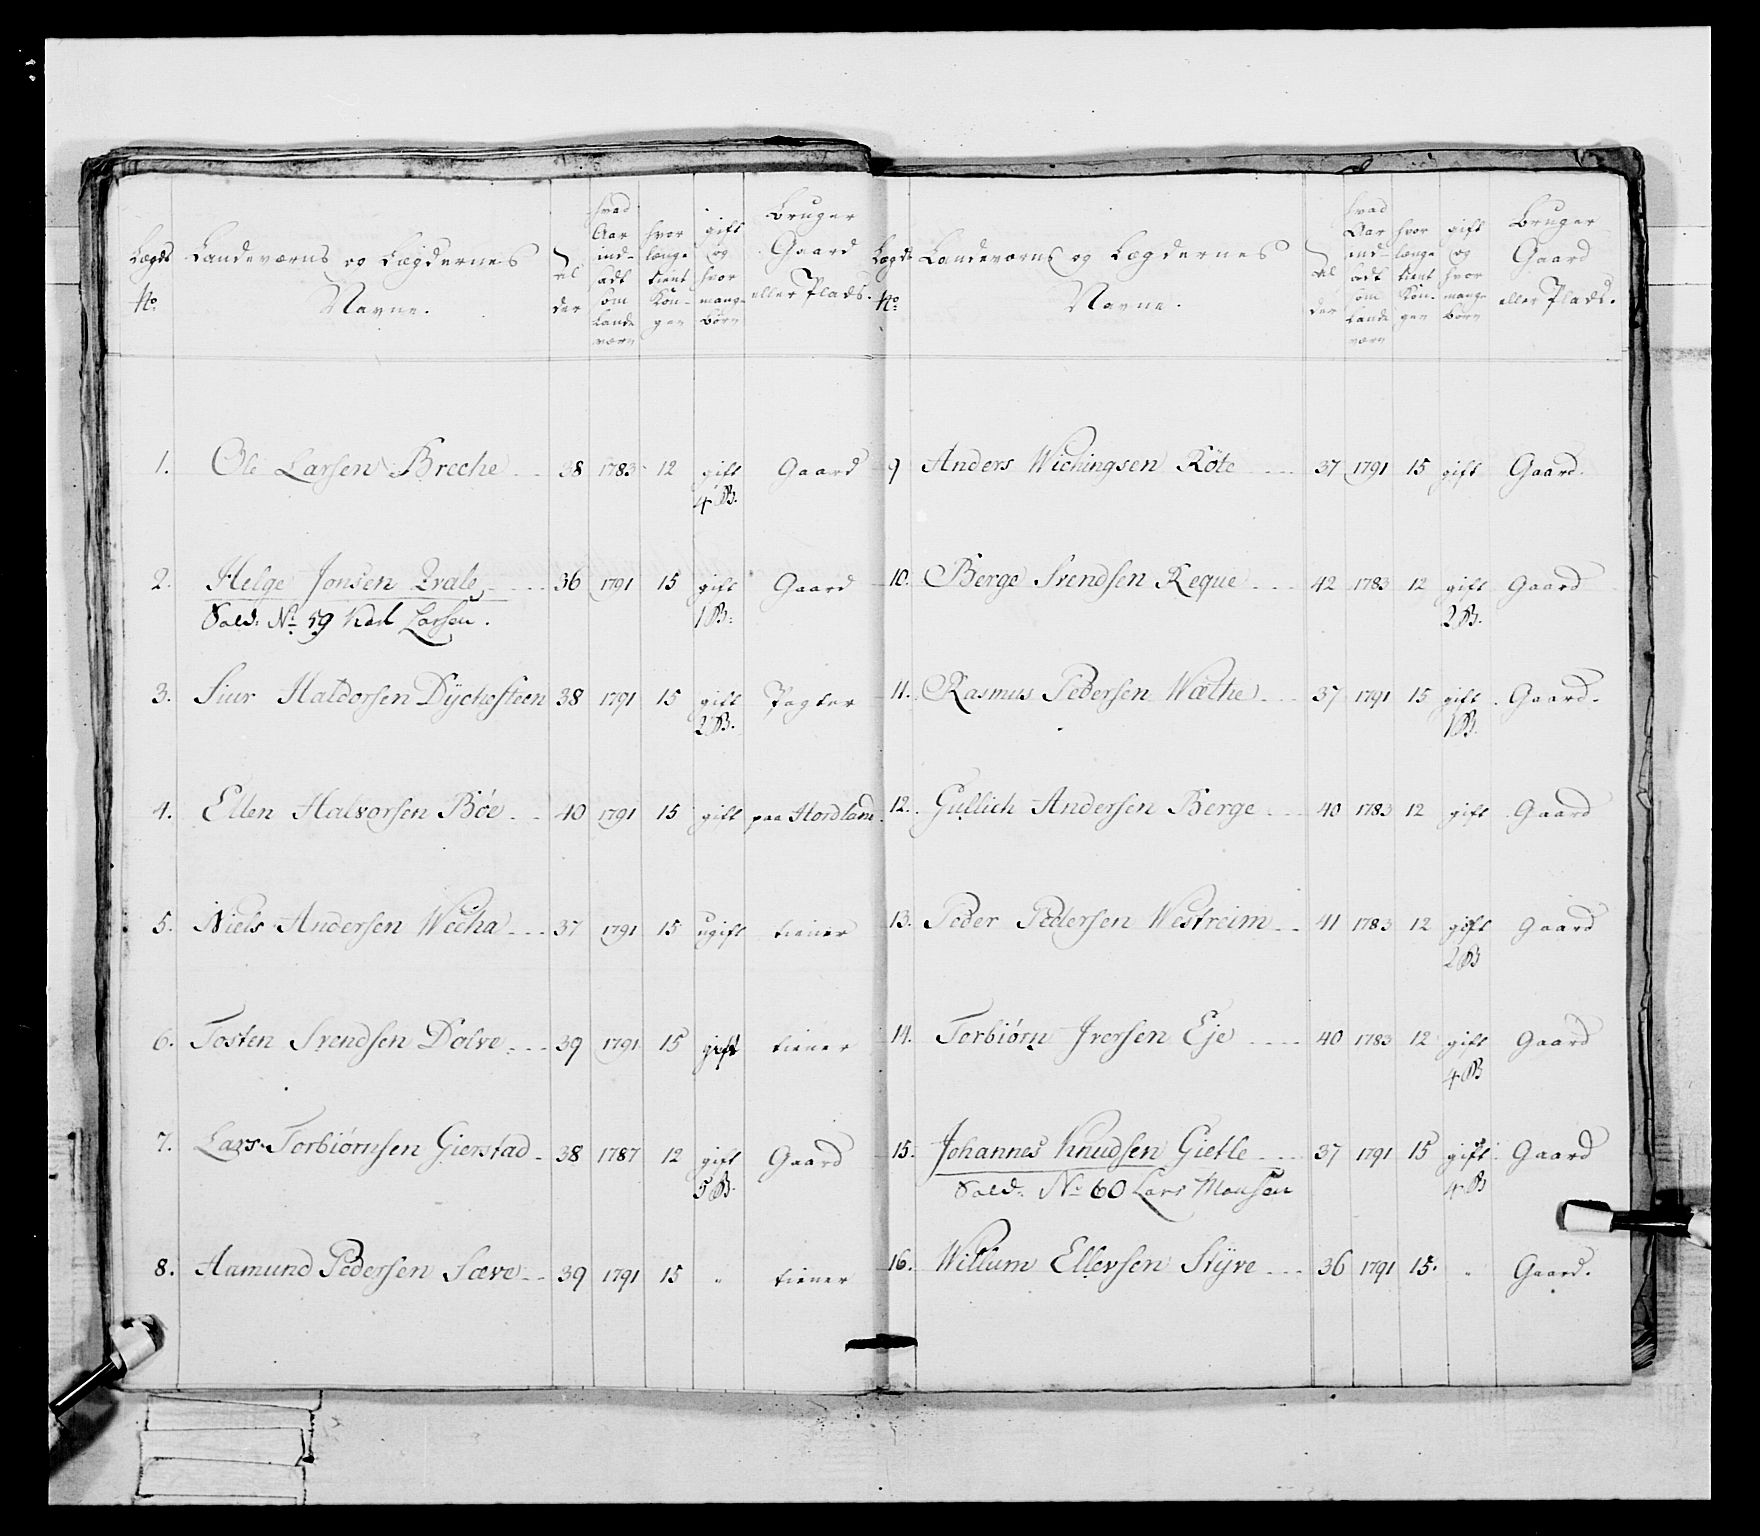 Lægds No. Landeværns og Lægdernes Navne. Alder hvad Aar ind-ladt som Lande værn hvor længe tient Kon-gen gift og hvor mange Børn Bruger Gaard eller Plads.
1. Ole Larsen Breche 38 1783 12 gift Gaard
4 B.
2. Helge Jonsen Qvale 36 1791 15 gift Gaard
Sold: No 59 Larsen. 1 B:
3. Siur Haldorsen Dÿchesteen 38 1791 15 gift Pagter
2 B.
4. Ellen Halvorsen Böe 40 1791 15 gift paa Hordland
5. Niels Andersen Wecha 37 1791 15 ugift tiener
6. Tosten Svendsen Dolve 39 1791 15 gift tiener
7. Lars Torbiörnsen Gierstad 38 1787 12 gift Gaard
5 B.
8. Aamund Pedersen Sæve 39 1791 15 " tiener
Lægds No. Landeværns og Lægdernes Navne. Alder hvad Aar ind-ladt som Lande værn hvor længe tient Kon-gen gift og hvor mange Börn Bruger Gaard eller Plads.
9 Anders Wichingsen Röte 37 1791 15 gift Gaard.
10. Berge Svendsen Reque 42 1783 12 gift Gaard
2 B.
11. Rasmus Pedersen Wæthe 37 1791 15 gift Gaard.
1 B.
12. Gullich Andersen Berge 40 1783 12 gift Gaard
13. Peder Pedersen Westreim 41 1783 12 gift Gaard
2 B
14. Torbiörn Iversen Eje 40 1783 12 gift Gaard
4 B
15. Johannes Knudsen Gietle 37 1791 15 gift Gaard
Sold. No 60 Lars Monsen 4 B
16. Willum Ellevsen Stÿve 36 1791 15. " Gaard.